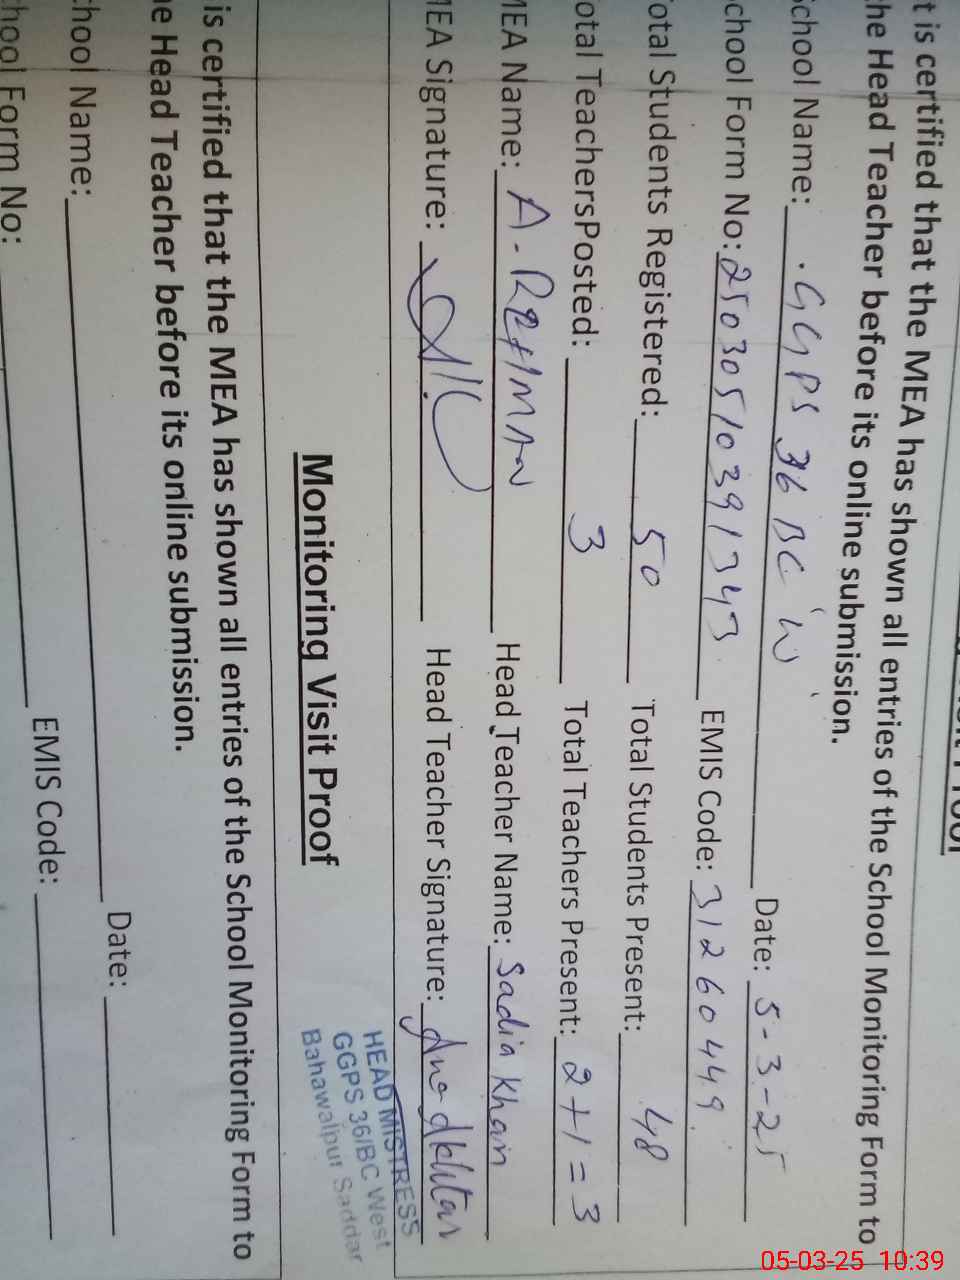 t is certified that the MEA has shown all entries of the School Monitoring Form to
he Head Teacher before its online submission.
School Name: GGPS 36 BC W Date: 5-3-25
chool Form No: 25030510391343 EMIS Code: 31260449
otal Students Registered: 50 Total Students Present: 48
otal TeachersPosted: 3 Total Teachers Present: 2+1=3
MEA Name: A-REHMAN Head Teacher Name: Sadia Khan
MEA Signature: Head Teacher Signature: Akhtar
HEAD MISTRESS
GGPS 36/BC West
Bahawalpur Saddar
Monitoring Visit Proof
is certified that the MEA has shown all entries of the School Monitoring Form to
he Head Teacher before its online submission.
chool Name: Date:
chool Form No: EMIS Code:
05-03-25 10:39